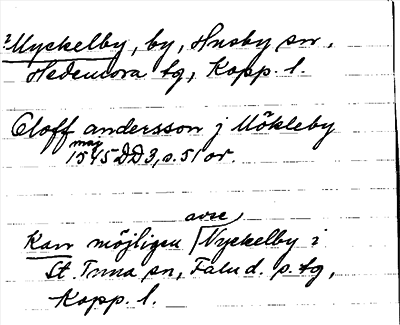 ? Myckelby, by, Husby sn,
Hedemora tg, Kopp. l.
Oloff andersson j Mökleby
maj
1545 DD3, s. 51 or.
avse
Kan möjligen Nyckelby i
St. Tuna sn, Falu d. s. tg,
Kopp. l.